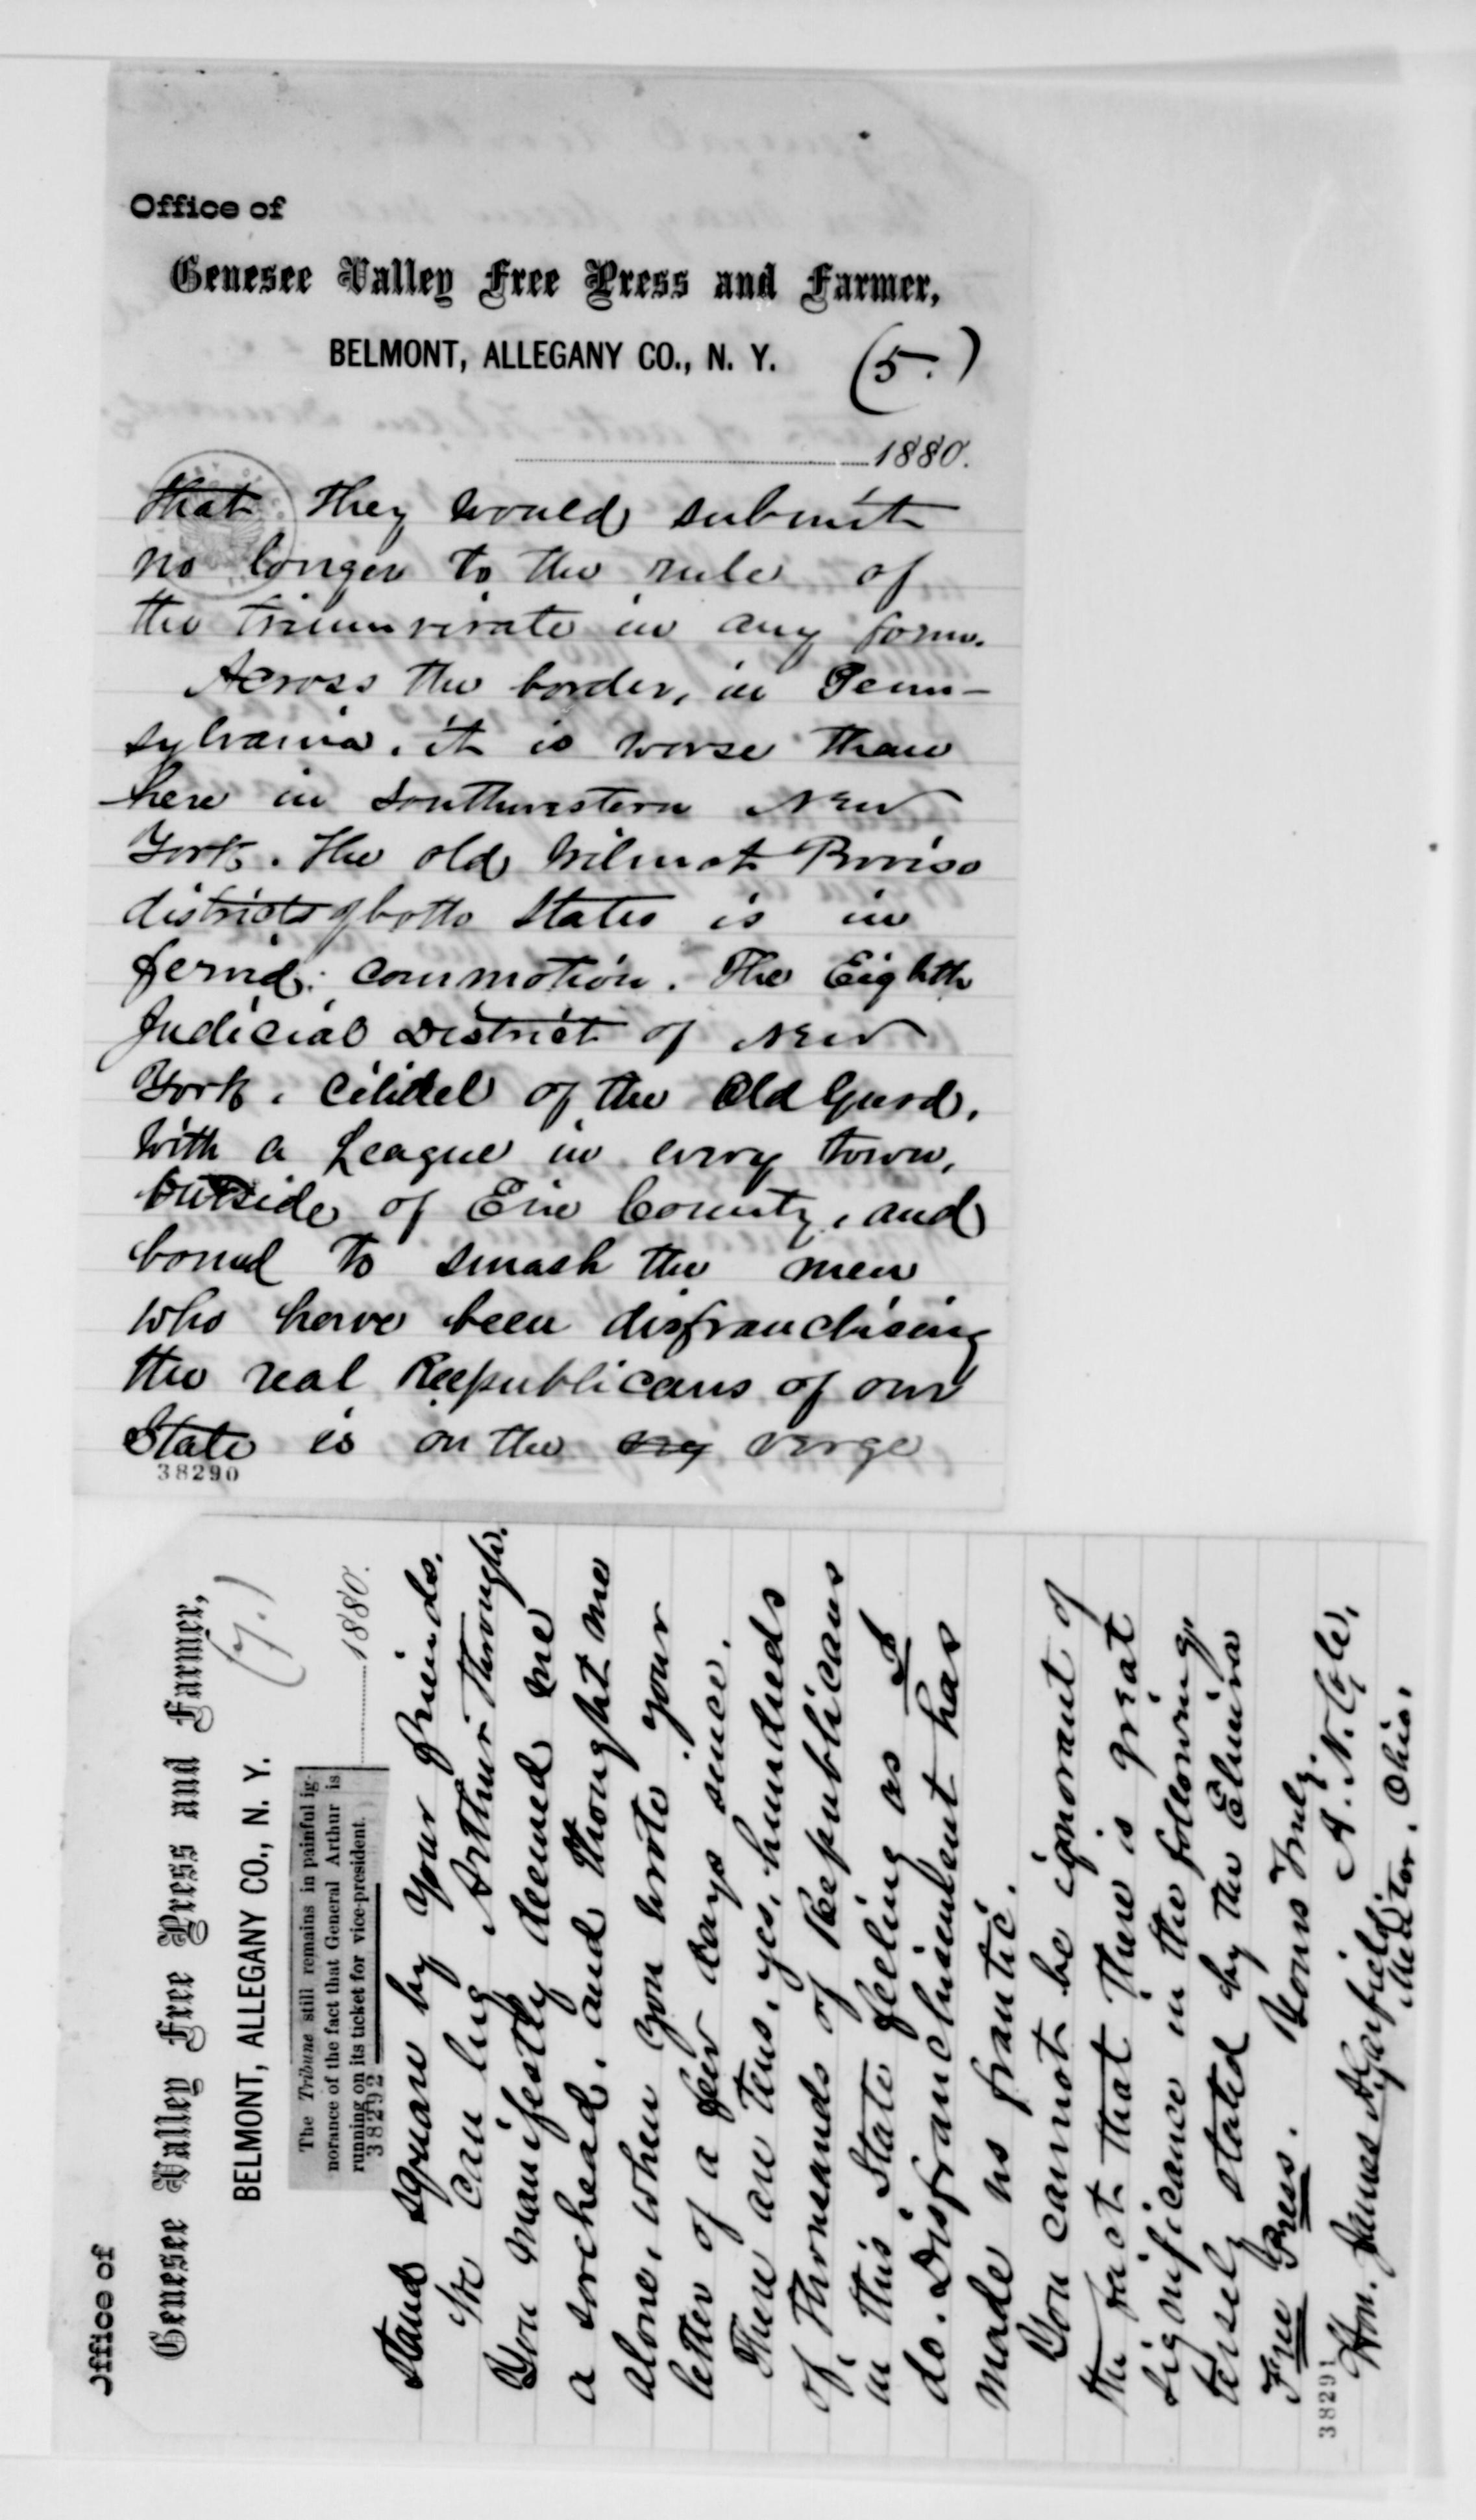 Office of
Genesee Valley Free Press and Farmer,
BELMONT, ALLEGANY CO., N. Y. (5.)
1880.
that they would submit
no longer to the rule of
the triumvirate in any form.
Across the border, in Penn-
sylvania, it is worse than
here in Southwestern New
York. The old Wilmot Proviso
districts of both States is in
fervid commotion. The Eighth
Judicial District of New
York, Citidel of the Old Guard,
with a League in every town,
outside of Erie County, and
bound to smash the men
who have been disfranchising
the real Republicans of our
State is on the verge
38290
Office of
Genesee Valley Free Press and Farmer,
BELMONT, ALLEGANY CO., N. Y. (7.)
1880.
The Tribune still remains in painful ig-
norance of the fact that General Arthur is
running on its ticket for vice-president.
38292
stand square by your friends.
We can lug Arthur through.
You manifestly deemed me
a sorehead, and thought me
alone, when you wrote your
letter of a few days since.
There are tens, yes, hundreds
of thousands of Republicans
in this State feeling as I
do. Disfranchisement has
made us frantic.
You cannot be ignorant of
the fact that there is great
significance in the following
tersely stated by the Elmira
Free Press. Yours Truly,
A. N. Cole,
Hon. James A. Garfield,
Mentor, Ohio.
38291